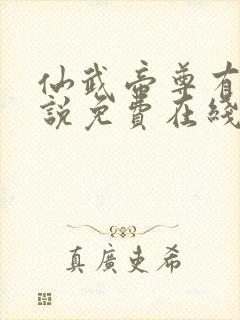 仙武帝尊有
說免費在綫
真廣史希